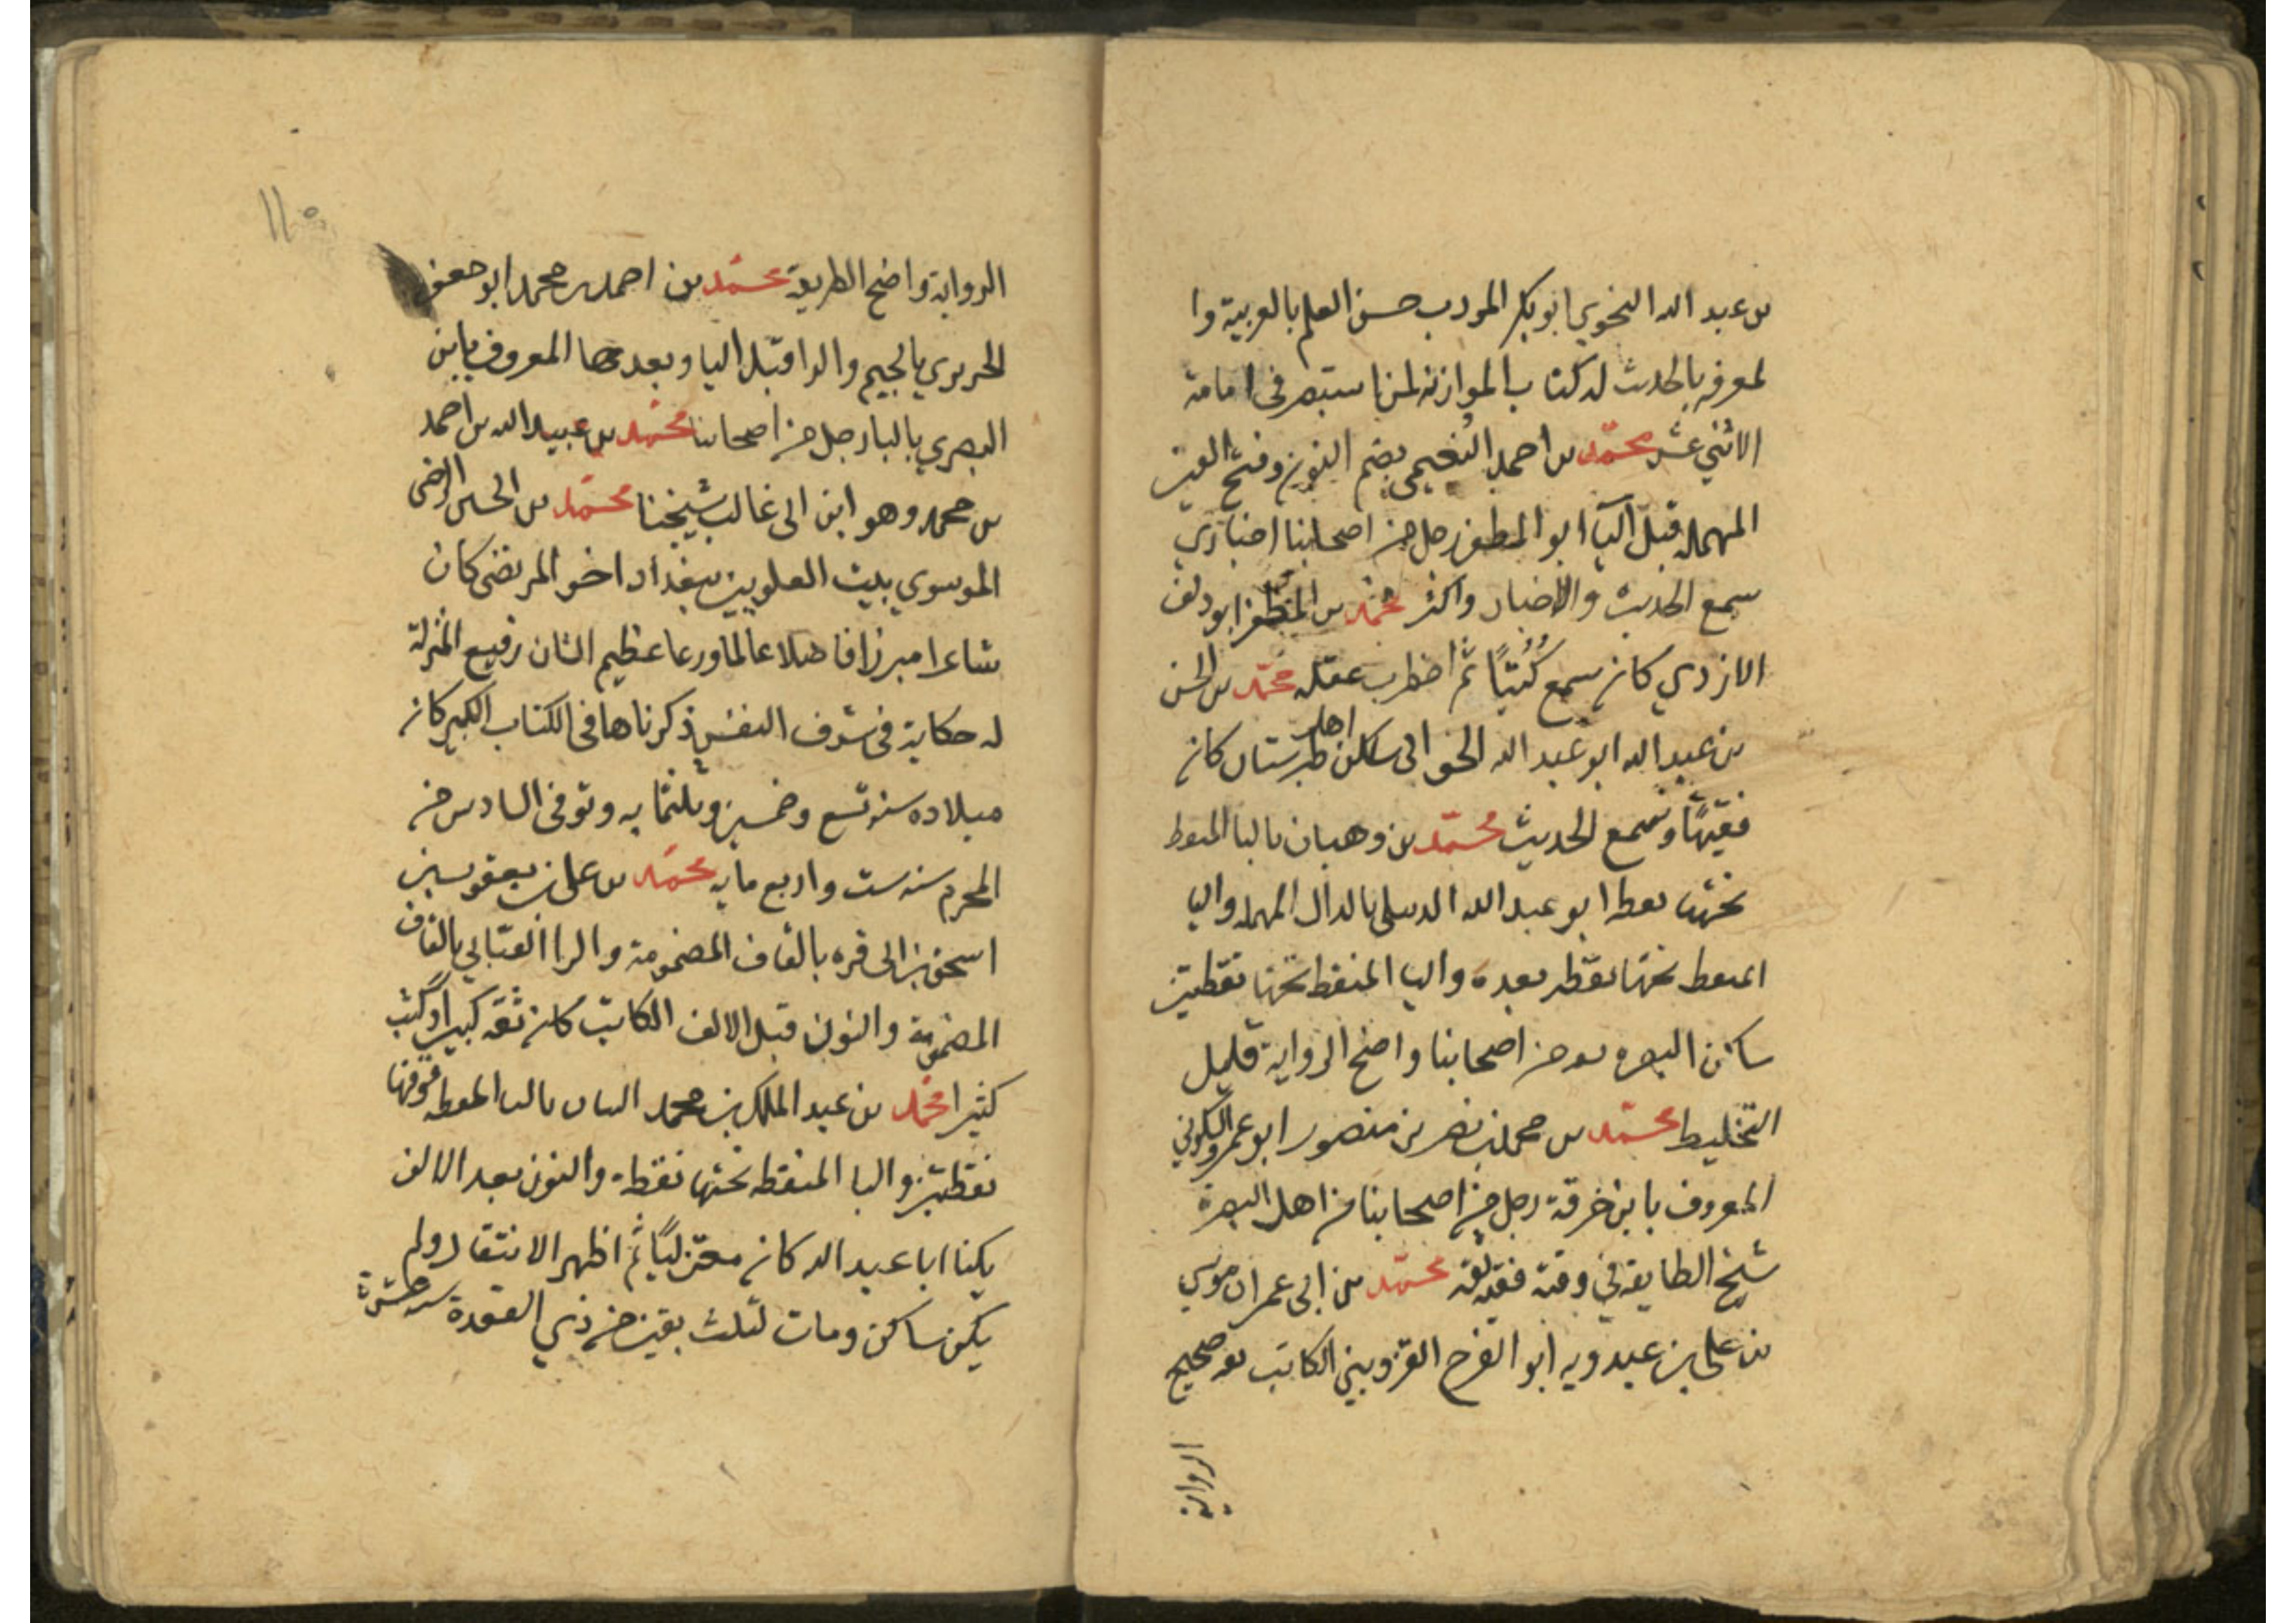 بن عبد الله النحوي ابو بكر المودب حسن العلم بالعربية وا
لمعرفه بالحديث له كتاب الموازنه لمن استبصر فى امامة
الاثني عشر محمّد بن احمد النُعيمي بضم النون وفتح العين
المهمله قبل اليآ ابو المظفر رجل من اصحابنا اخباري
سمع الحديث والاخبار واكثر محمّد بن المظفر ابو دلف
الازدي كان سمع كُتُبًا ثم اضطرب عقله محمّد بن الحسن
بن عبد الله ابو عبد الله الجواني ساكن اهل طبرستان كان
فقيهًا وسمع الحديث محمّد بن وهبان بالبا المنقط
تحتها نقطه ابو عبد الله الدبيلي بالدال المهمله والبا
المنقط تحتها نقطه بعده واليا المنقط تحتها نقطتين
ساكن البصره ثقه من اصحابنا واضح الرواية قليل
التخليط محمّد بن محمد بن نصر بن منصور ابو عمرو السكوني
المعروف بابن خرقة رجل من اصحابنا من اهل البصرة
شيخ الطايفه في وقته فقيه ثقه محمّد بن ابى عمران موسي
بن علي بن عبدويه ابو الفرج القزويني الكاتب ثقه صحيح
الرواية
١١٥
الرواية واضح الطريقة محمّد بن احمد بن محمد ابو جعفر
الجريري بالجيم والرا قبل اليا وبعدها المعروف بابن
البصري بالبا رجل من اصحابنا محمّد بن عبيد الله بن احمد
بن محمد وهو ابن ابى غالب شيخنا محمّد بن الحسين الرضى
الموسوي بيت العلويين ببغداد اخو المرتضى كان
شاعرا مبرزا فاضلا عالما ورعا عظيم الشان رفيع المنزلة
له حكاية فى شرف النفس ذكرناها فى الكتاب الكبير كان
ميلاده سنه تسع وخمسين وثلثمايه وتوفى السادس من
المحرم سنه ست واربع مايه محمّد بن على بن يعقوب بن
اسحق بن ابى قره بالقاف المضمومة والرا القنابي بالقاف
المضمومة والنون قبل الالف الكاتب كان ثقه كبيرا وكتب
كثيرا محمّد بن عبد الملك بن محمد التبان بالتا المنقطه فوقها
نقطتين والبا المنقطه تحتها نقطة والنون بعد الالف
يكنا ابا عبد الله كان معتزليًا ثم اظهر الانتقال ولم
يكن ساكن ومات لثلث بقين من ذي القعدة سنه عشرة